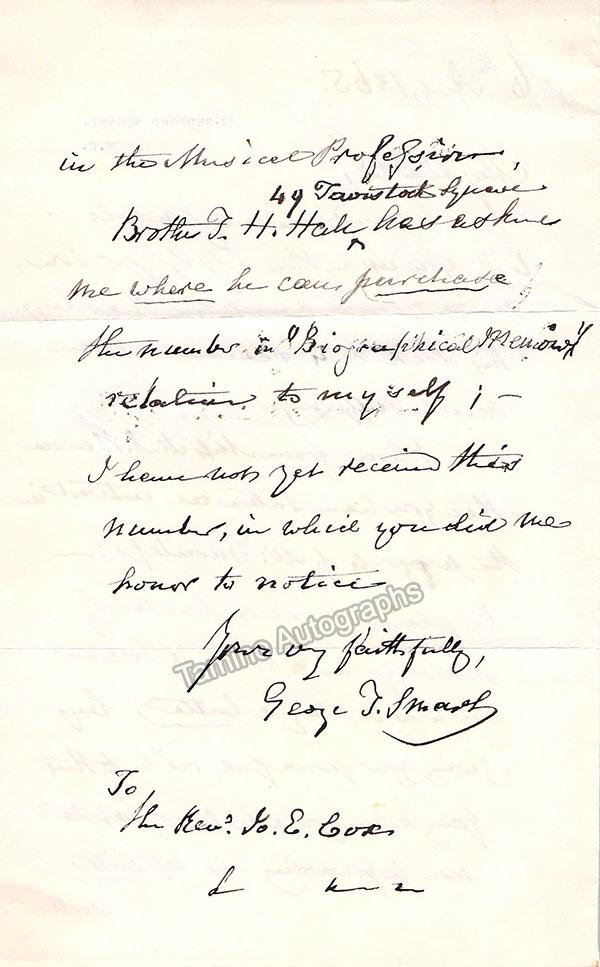 in the Musical Profession,
49 Tavistock Square
Brother J. H. Hale ^ has asked
me where he can purchase
the number in "Biographical Memoirs"
relation to myself ; –
I have not yet received this
number, in which you did me
honor to notice
Yours very faithfully,
George T. Smart
To
The Revd. Jo. E. Cox
Tamino Autographs